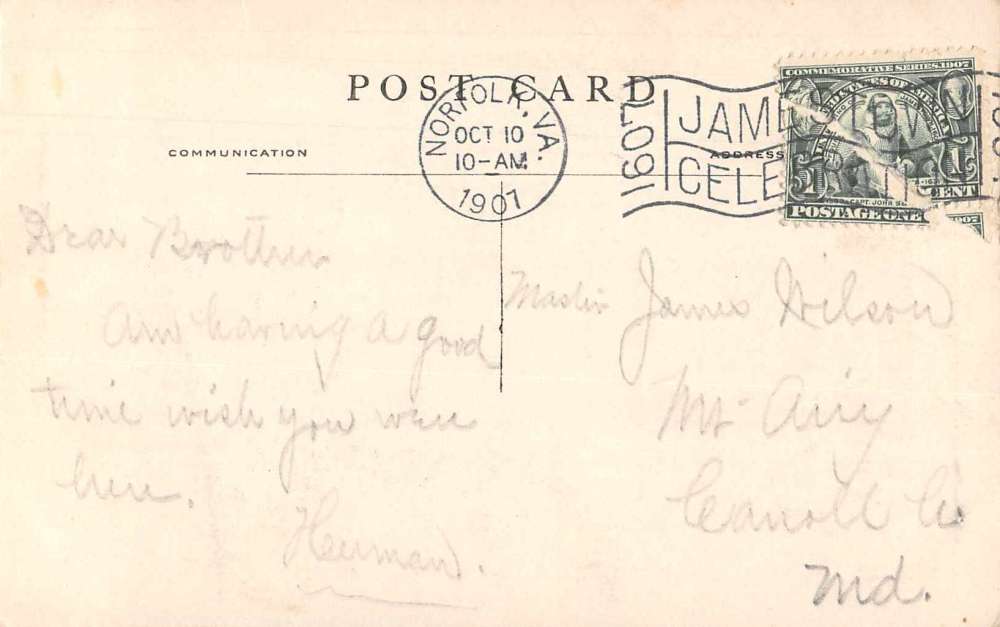 POST CARD
NORFOLK, VA.
OCT 10
10-AM
1907
1607
JAMES
CELE
COMMEMORATIVE SERIES, 1907
STATES OF AMERICA
CAPT. JOHN
1 CENT
POSTAGE ONE
1907
COMMUNICATION
ADDRESS
Dear Brother
Am having a good
time wish you were
here.
Herman.
Master James Wilson
Mt Airy
Carroll Co
Md.